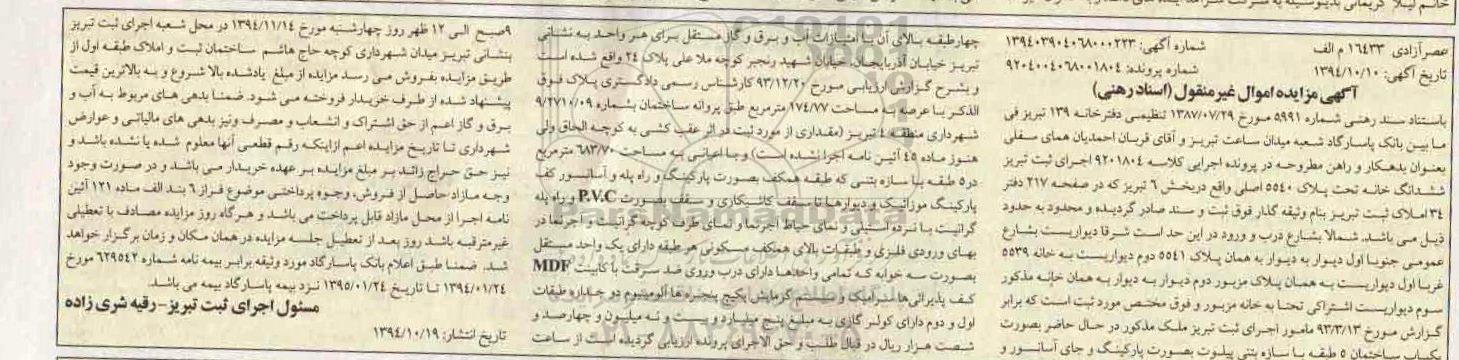 عصرآزادی ۱۶۴۳۳ م الف
شماره آگهی: ۱۳۹۴۰۳۹۰۴۰۶۸۰۰۰۲۲۳
تاریخ آگهی: ۱۳۹۴/۱۰/۱۰
شماره پرونده: ۹۲۰۴۰۰۴۰۶۸۰۰۱۸۰۴
آگهی مزایده اموال غیرمنقول (اسناد رهنی)
باستناد سند رهنی شماره ۵۹۹۱ مورخ ۱۳۸۷/۰۷/۲۹ تنظیمی دفترخانه ۱۳۹ تبریز فی
ما بین بانک پاسارگاد شعبه میدان ساعت تبریز و آقای قربان احمدیان همای سفلی
بعنوان بدهکار و راهن مطروحه در پرونده اجرایی کلاسه ۹۲۰۱۸۰۴ اجرای ثبت تبریز
ششدانگ خانه تحت پلاک ۵۵۴۰ اصلی واقع دربخش ۶ تبریز که در صفحه ۲۱۷ دفتر
۳۴ املاک ثبت تبریز بنام وثیقه گذار فوق ثبت و سند صادر گردیده و محدود به حدود
ذیل می باشد. شمالا بشارع درب و ورود در این حد است شرقا دیواریست بشارع
عمومی جنوبا اول دیوار به دیوار به همان پلاک ۵۵۴۱ دوم دیواریست به خانه ۵۵۳۹
غربا اول دیواریست به همان پلاک مزبور دوم دیوار به دیوار به همان خانه مذکور
سوم دیواریست اشتراکی تحتا به خانه مزبور و فوق مختص مورد ثبت است که برابر
گزارش مورخ ۹۳/۳/۱۳ مامور اجرای ثبت تبریز ملک مذکور در حال حاضر بصورت
یکباب ساختمان ۵ طبقه با سازه بتنی پیلوت بصورت پارکینگ و جای آسانسور و
چهارطبقه بالای آن با امتیازات آب و برق و گاز مستقل برای هر واحد به نشانی
تبریز خیابان آذربایجان، خیابان شهید رنجبر کوچه ملا علی پلاک ۲۴ واقع شده است
و بشرح گزارش ارزیابی مورخ ۹۳/۱۲/۲۰ کارشناس رسمی دادگستری پلاک فوق
الذکر با عرصه به مساحت ۱۷٤/۷۷ مترمربع طبق پروانه ساختمان بشماره ۹/۲۷۱۰/۰۹
شهرداری منطقه ٤ تبریز (مقداری از مورد ثبت در اثر عقب کشی به کوچه الحاق ولی
هنوز ماده ٤٥ آئین نامه اجرا نشده است) و با اعیانی به مساحت ۶۸۳/۷۰ مترمربع
در۵ طبقه با سازه بتنی که طبقه همکف بصورت پارکینگ و راه پله و آسانسور کف
پارکینگ موزائیک و دیوارها تا سقف کاشیکاری و سقف بصورت P.V.C و راه پله
گرانیت با نرده استیلی و نمای حیاط آجرنما و نمای طرف کوچه گرانیت و آجرنما در
بهای ورودی فلزی و طبقات بالای همکف مسکونی هر طبقه دارای یک واحد مستقل
بصورت سه خوابه که تمامی واحدها دارای درب ورودی ضد سرقت با کابینت MDF
کف پذیرائی ها سرامیک و سیستم گرمایش پکیج پنجره ها آلومینیوم در چهارده طبقات
اول و دوم دارای کولر گازی به مبلغ پنج میلیارد و بیست و نه میلیون و چهارصد و
شصت هزار ریال در قبال طلب و حق الاجرای پرونده ارزیابی گردیده است از ساعت
۹صبح الی ۱۲ ظهر روز چهارشنبه مورخ ۱۳۹٤/۱۱/۱٤ در محل شعبه اجرای ثبت تبریز
بنشانی تبریز میدان شهرداری کوچه حاج هاشم ساختمان ثبت و املاک طبقه اول از
طریق مزایده بفروش می رسد مزایده از مبلغ یادشده بالا شروع و به بالاترین قیمت
پیشنهاد شده از طرف خریدار فروخته می شود. ضمنا بدهی های مربوط به آب و
برق و گاز اعم از حق اشتراک و انشعاب و مصرف ونیز بدهی های مالیاتی و عوارض
شهرداری تا تاریخ مزایده اعم ازاینکه رقم قطعی آنها معلوم شده یا نشده باشد و
نیز حق حراج زائد بر مبلغ مزایده بر عهده خریدار می باشد و در صورت وجود
وجه مازاد حاصل از فروش، وجوه پرداختی موضوع فراز ٦ بند الف ماده ۱۲۱ آئین
نامه اجرا از محل مازاد قابل پرداخت می باشد و هرگاه روز مزایده مصادف با تعطیلی
غیرمترقبه باشد روز بعد از تعطیل جلسه مزایده در همان مکان و زمان برگزار خواهد
شد. ضمنا طبق اعلام بانک پاسارگاد مورد وثیقه برابر بیمه نامه شماره ٦۲۹۵٤۲ مورخ
۱۳۹٤/۰۱/۲٤ تا تاریخ ۱۳۹۵/۰۱/۲٤ نزد بیمه پاسارگاد بیمه می باشد.
مسئول اجرای ثبت تبریز-رقیه شری زاده
تاریخ انتشار: ۱۳۹٤/۱۰/۱۹
ParsNamadData